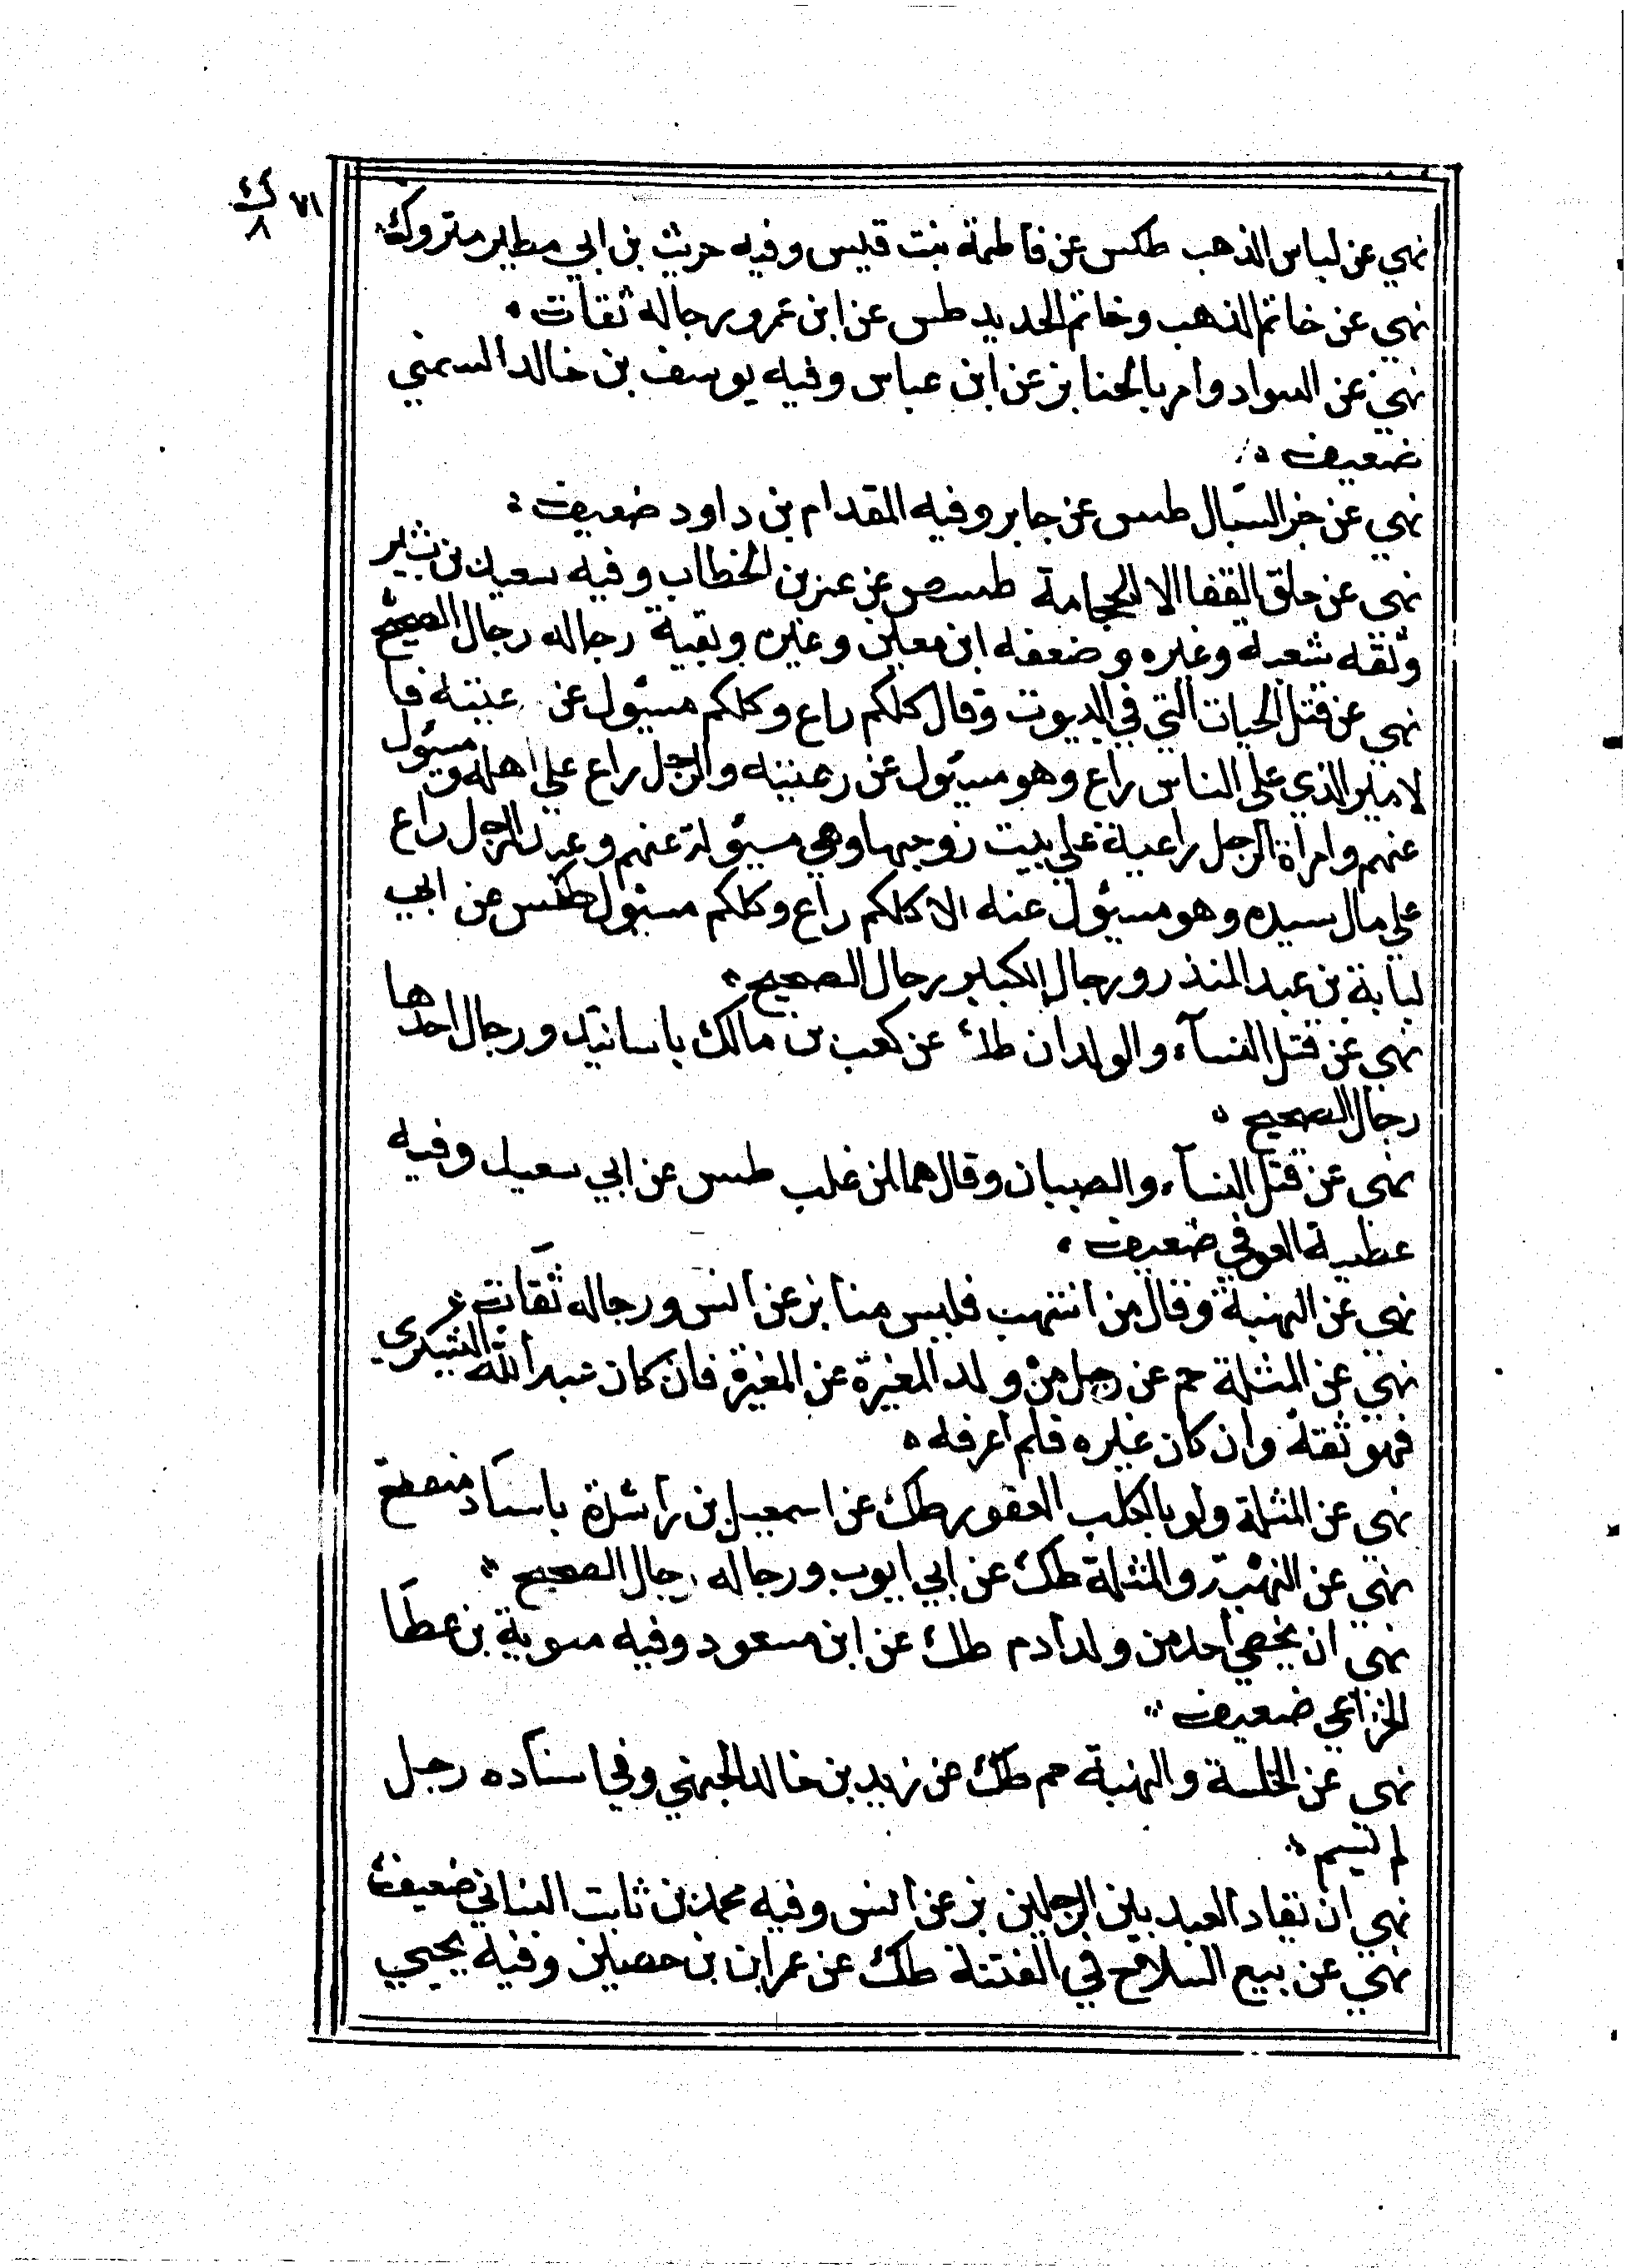 نهي عن لباس الذهب طكس عن فاطمة بنت قيس وفيه حريث بن ابي مطير متروك
نهي عن خاتم الذهب وخاتم الحديد طس عن ابن عمرو رجاله ثقات
نهي عن السواد وامر بالحنا بز عن ابن عباس وفيه يوسف بن خالد السمتي
ضعيف
نهي عن جز السبال طس عن جابر وفيه المقدام بن داود ضعيف
نهى عن حلق القفا الا للحجامة طسص عن عمر بن الخطاب وفيه سعيد بن بشير
وثقه شعبة وغيره وضعفه ابن معين وغيره وبقية رجاله رجال الصحيح
نهي عن قتل الحيات التي في البيوت وقال كلكم راع وكلكم مسئول عن رعيته فا
لامير الذي على الناس راع وهو مسئول عن رعيته والرجل راع على اهله وهو مسئول
عنهم وامراة الرجل راعية على بيت زوجها وهي مسئولة عنهم وعبد الرجل راع
على مال سيده وهو مسئول عنه الا كلكم راع وكلكم مسئول طكس عن ابي
لبابة بن عبد المنذر ورجال الكبير رجال الصحيح
نهي عن قتل النسآء والولدان طك عن كعب بن مالك باسانيد ورجال احدها
رجال الصحيح
نهى عن قتل النسآء والصبيان وقال هما لمن غلب طس عن ابي سعيد وفيه
عطية العوفي ضعيف
نهي عن النهبة وقال من انتهب فليس منا بز عن انس ورجاله ثقات
نهي عن المثلة حم عن رجل من ولد المغيرة عن المغيرة فان كان عبد الله اليشكري
فهو ثقة وان كان غيره فلم اعرفه
نهى عن المثلة ولو بالكلب العقور طك عن اسمعيل بن راشد باسناد منقطع
نهي عن النهبة والمثلة طك عن ابي ايوب ورجاله رجال الصحيح
نهى ان يخصي احد من ولد ادم طك عن ابن مسعود وفيه معوية بن عطا
الخزاعي ضعيف
نهى عن الخلسة والنهبة حم طك عن زيد بن خالد الجهني وفي اسناده رجل
لم يسم
نهي ان يقاد العبد بين الرجلين بز عن انس وفيه محمد بن ثابت البناني ضعيف
نهي عن بيع السلاح في الفتنة طك عن عمران بن حصين وفيه يحيي